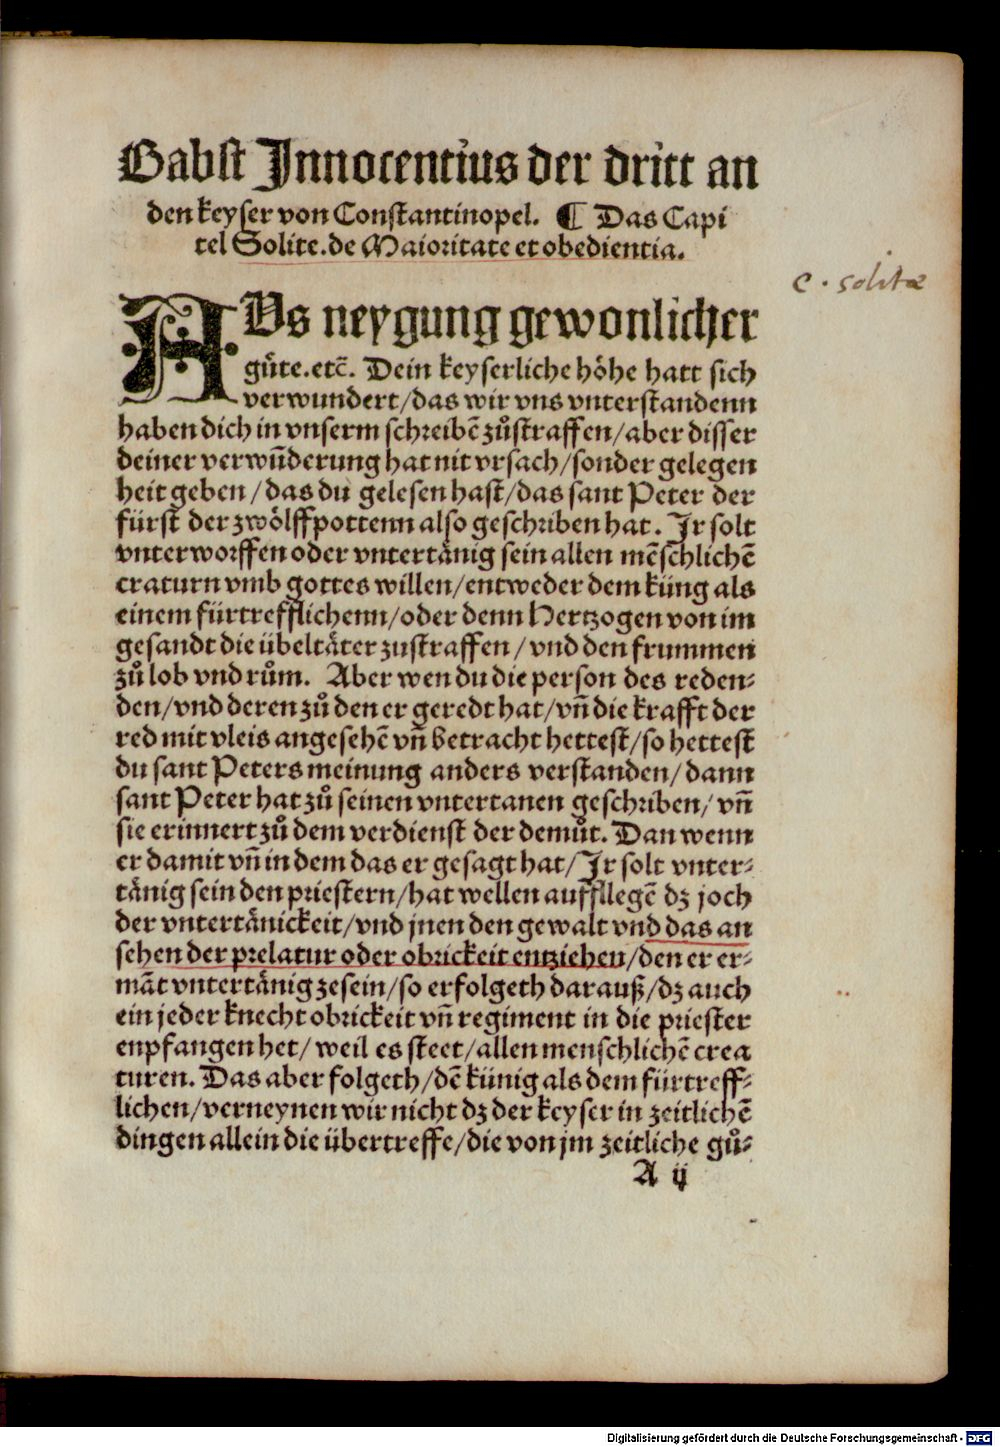 Babst Jnnocentius der dritt an
den keyser von Constantinopel. ¶ Das Capi
tel Solite. de Maioritate et obedientia.
c. solitæ
AVs neygung gewonlicher
gůte. etc̃. Dein keyserliche höhe hatt sich
verwundert/das wir vns vnterstandenn
haben dich in vnserm schreibẽ zůstraffen/aber disser
deiner verwũderung hat nit vrsach/sonder gelegen
heit geben/das du gelesen hast/das sant Peter der
fürst der zwölffpottenn also geschriben hat. Jr solt
vnterworffen oder vntertänig sein allen mẽschlichẽ
craturn vmb gottes willen/entweder dem küng als
einem fürtrefflichenn/oder denn Hertzogen von im
gesandt die übeltäter zustraffen/vnd den frummen
zů lob vnd rům. Aber wen du die person des reden⸗
den/vnd deren zů den er geredt hat/vñ die krafft der
red mit vleis angesehẽ vñ betracht hettest/so hettest
du sant Peters meinung anders verstanden/dann
sant Peter hat zů seinen vntertanen geschriben/vñ
sie erinnert zů dem verdienst der demůt. Dan wenn
er damit vñ in dem das er gesagt hat/Jr solt vnter⸗
tänig sein den priestern/hat wellen aufflegẽ dz joch
der vntertänickeit/vnd jnen den gewalt vnd das an
sehen der prelatur oder obrickeit entziehen/den er er⸗
mãt vntertänig zesein/so erfolgeth darauß/dz auch
ein jeder knecht obrickeit vñ regiment in die priester
enpfangen het/weil es steet/allen menschlichẽ crea
turen. Das aber folgeth/dẽ künig als dem fürtreff⸗
lichen/verneynen wir nicht dz der keyser in zeitlichẽ
dingen allein die übertreffe/die von jm zeitliche gů⸗
A ij
Digitalisierung gefördert durch die Deutsche Forschungsgemeinschaft - DFG